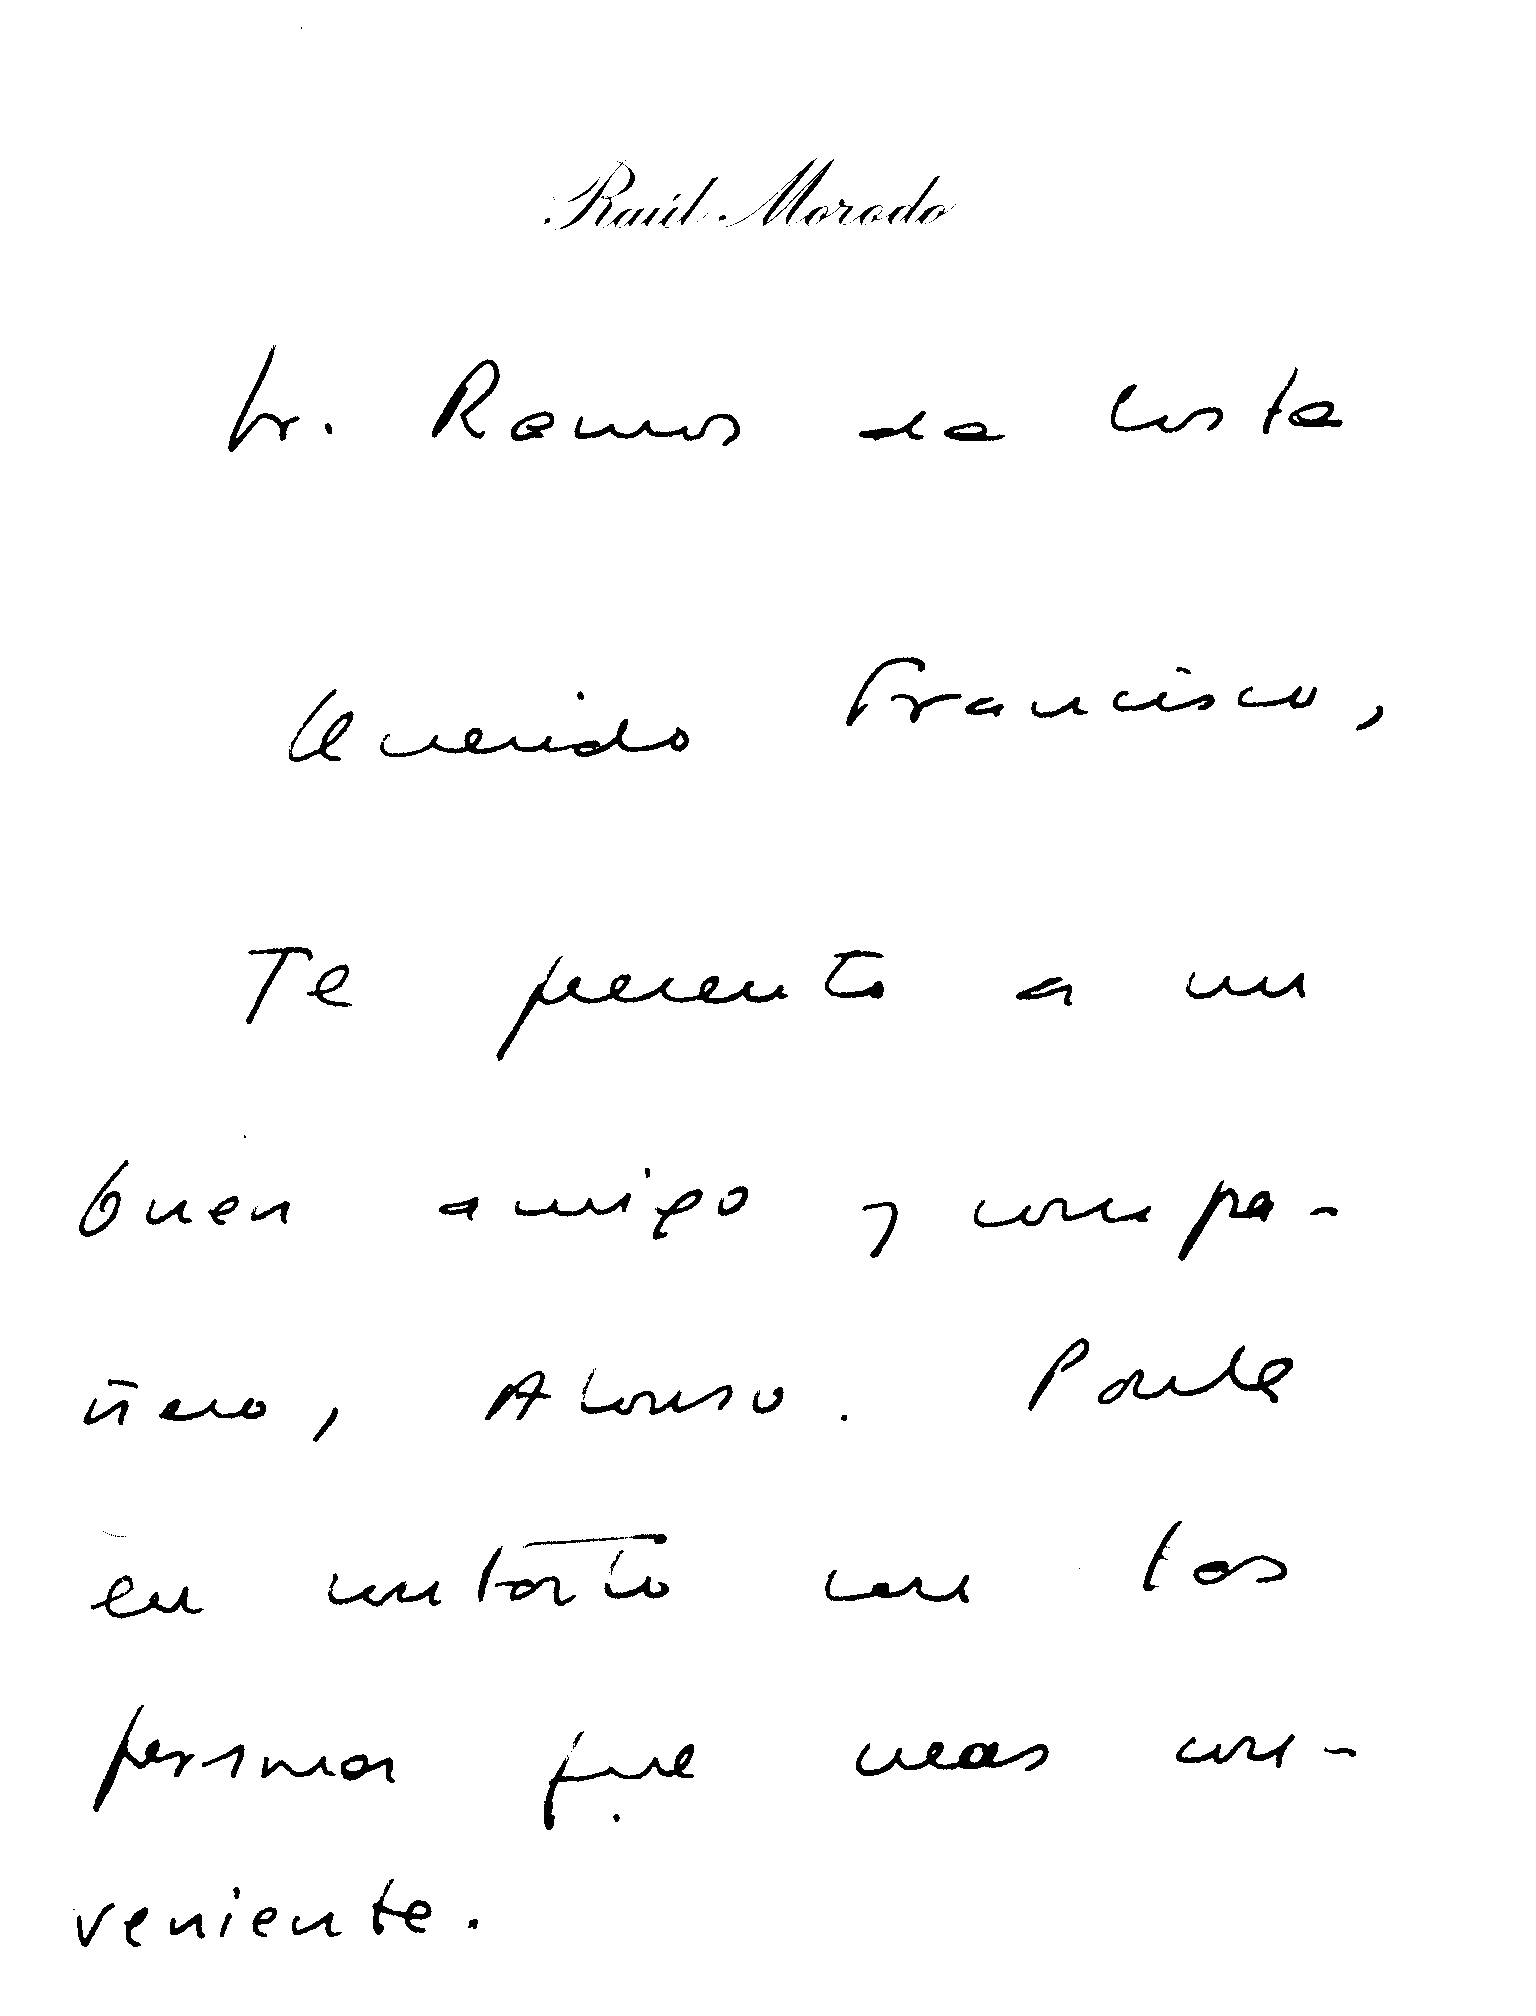 Raúl Morodo
Sr. Ramos da Costa
Querido Francisco,
Te presento a un
buen amigo y compa-
ñero, Alonso. Ponle
en contacto con las
personas que veas con-
veniente.